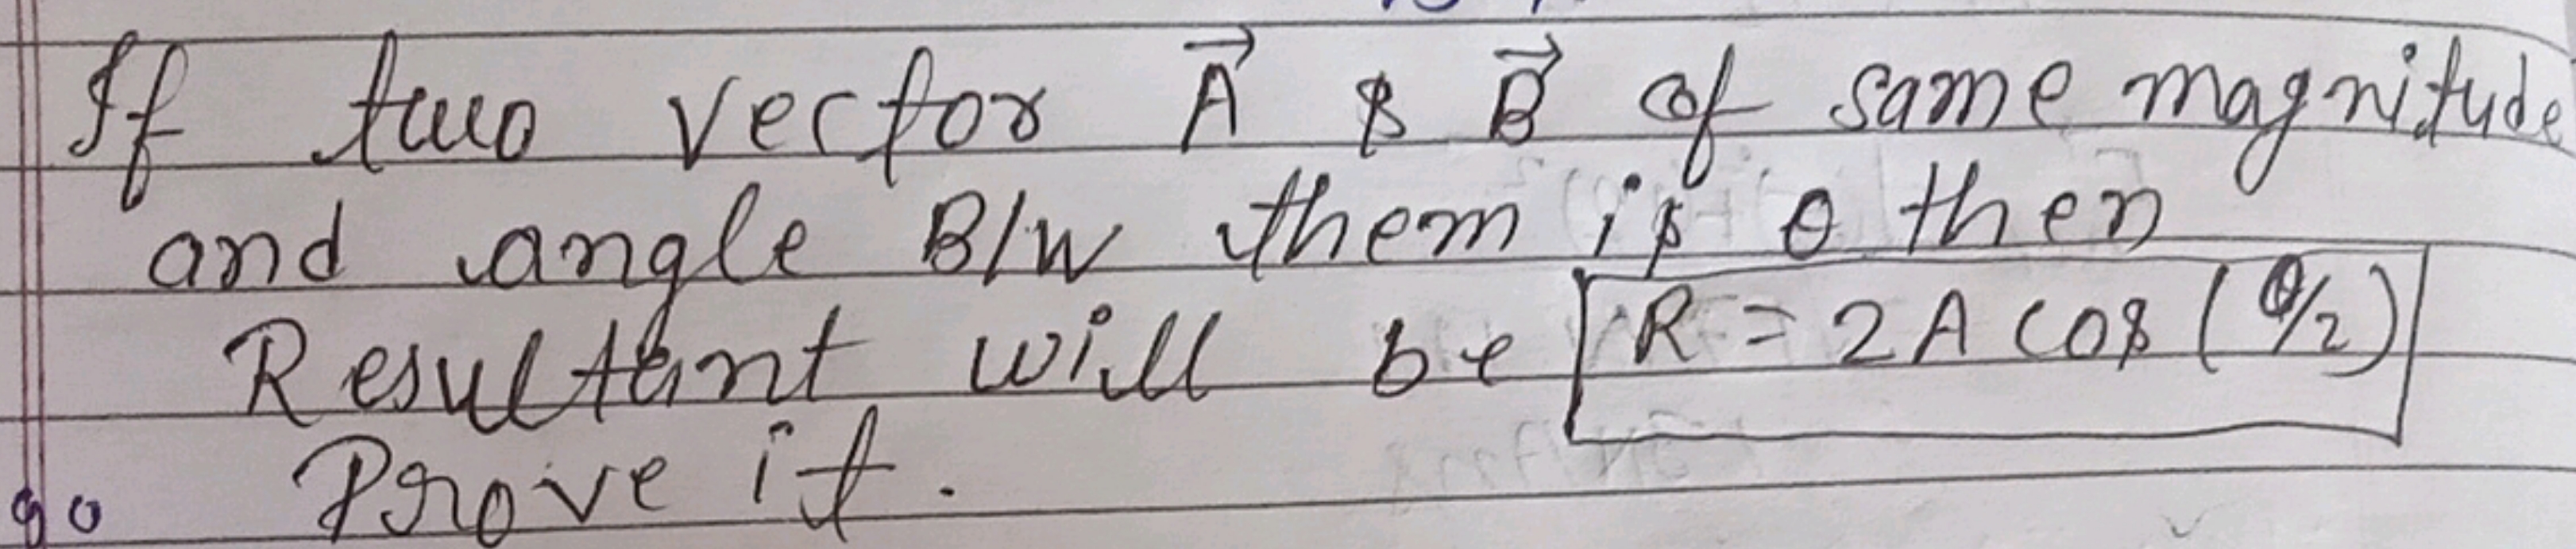 If two vector A⃗ & B⃗ of same magnitude
and angle B/w them is θ then
Resultant will be R = 2A cos (θ/2)
Prove it.